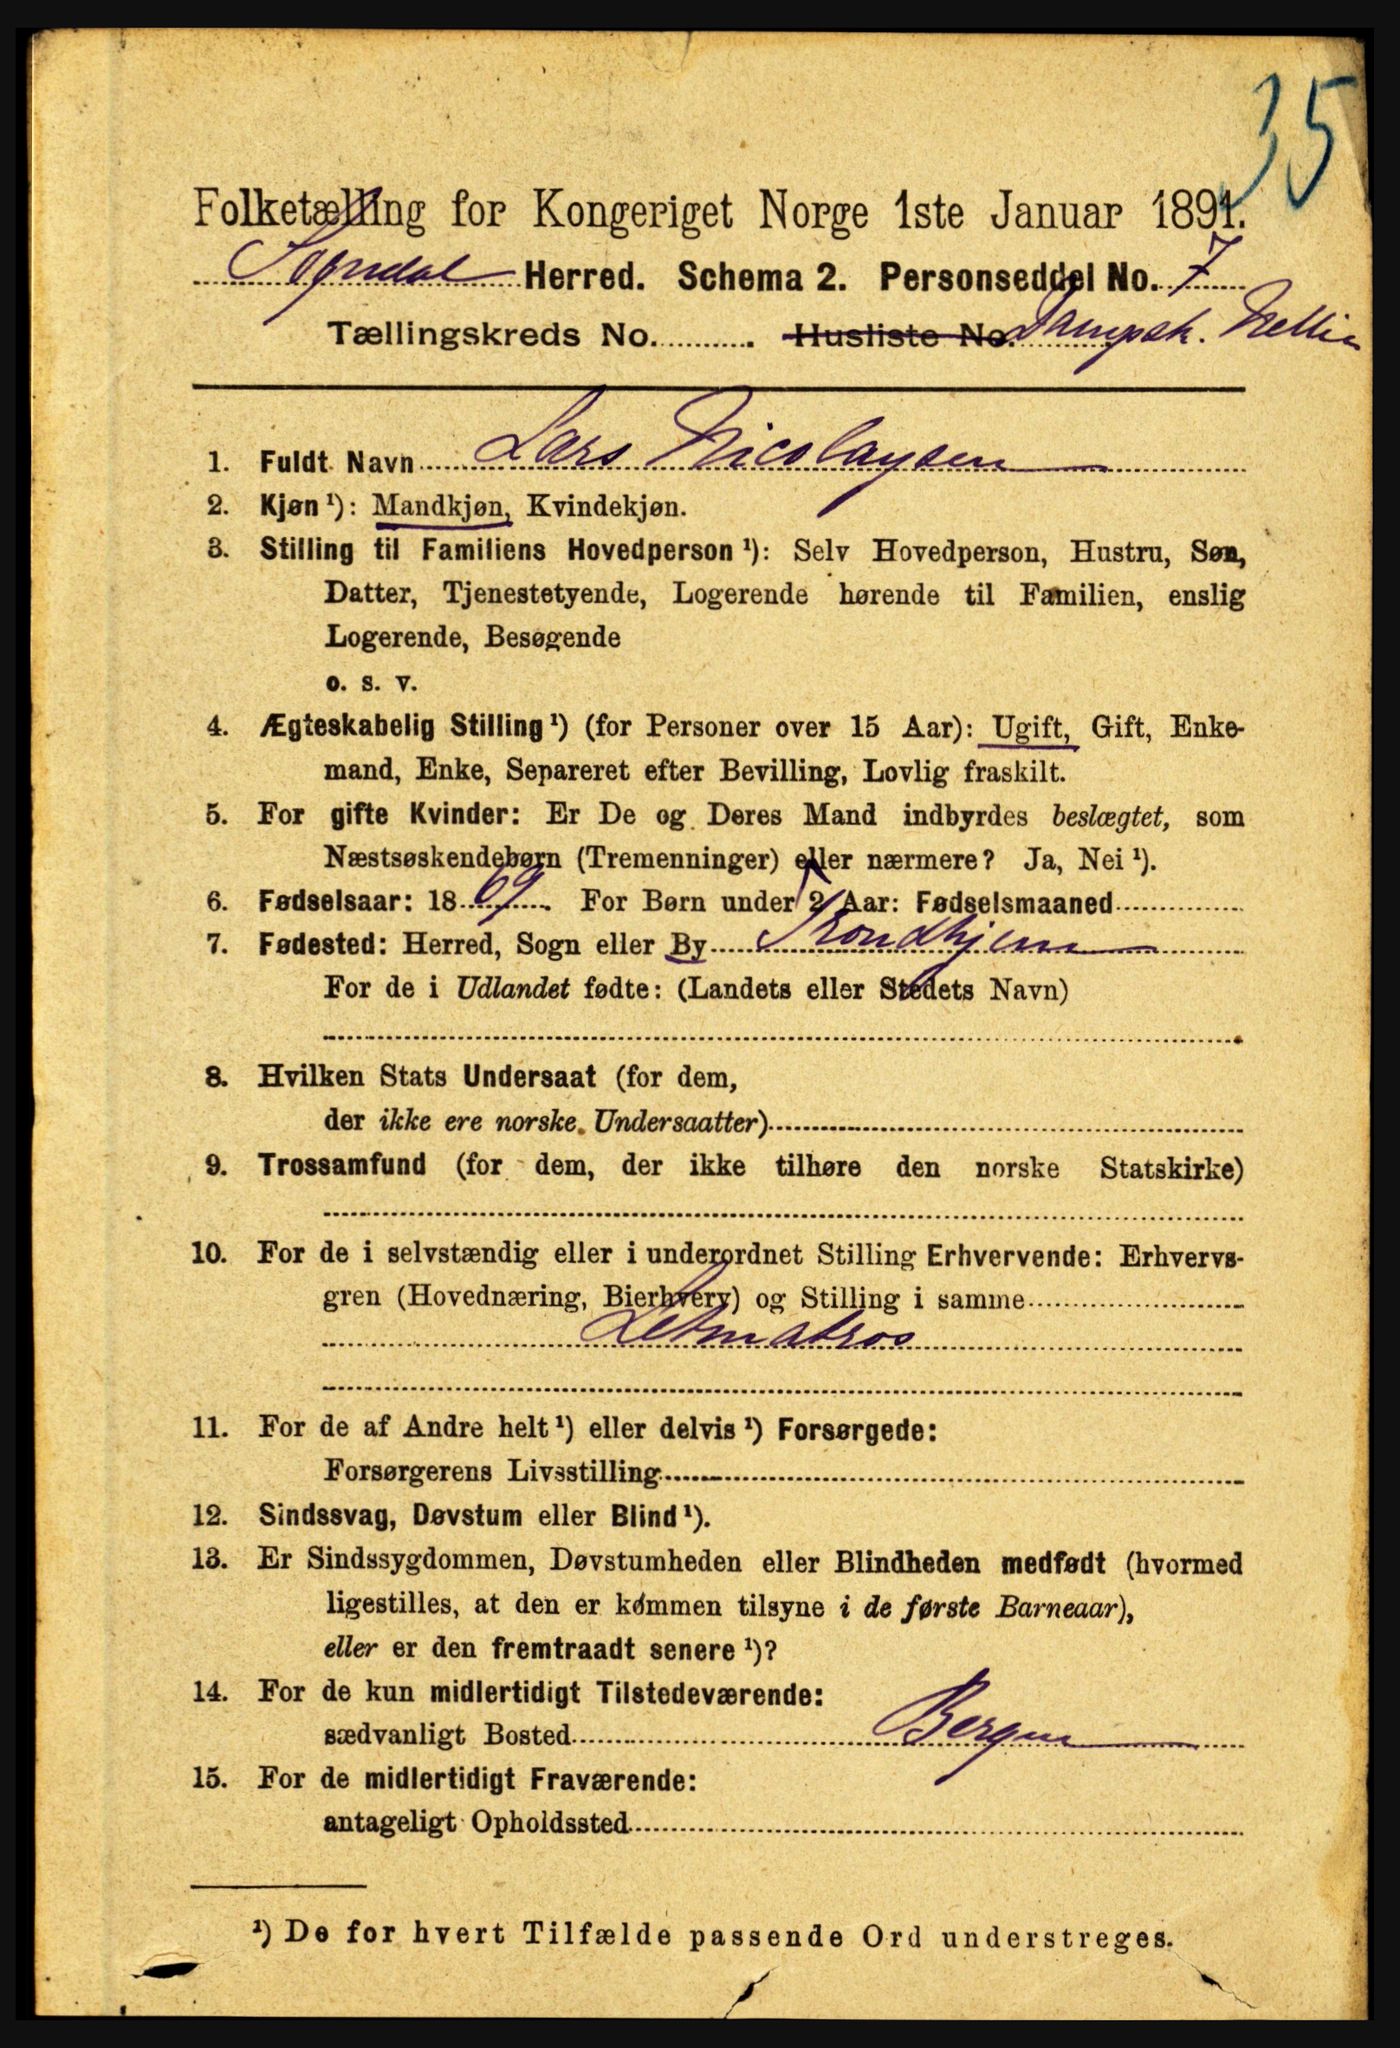 35
Folketælling for Kongeriget Norge 1ste Januar 1891.
Sogndal Herred. Schema 2. Personseddel No. 7
Tællingskreds No. . Husliste No. Dampsk. Nellie
1. Fuldt Navn Lars Nicolaysen
2. Kjøn ¹): Mandkjøn, Kvindekjøn.
3. Stilling til Familiens Hovedperson ¹): Selv Hovedperson, Hustru, Søn,
Datter, Tjenestetyende, Logerende hørende til Familien, enslig
Logerende, Besøgende
o. s. v.
4. Ægteskabelig Stilling ¹) (for Personer over 15 Aar): Ugift, Gift, Enke-
mand, Enke, Separeret efter Bevilling, Lovlig fraskilt.
5. For gifte Kvinder: Er De og Deres Mand indbyrdes beslægtet, som
Næstsøskendebørn (Tremenninger) eller nærmere? Ja, Nei ¹).
6. Fødselsaar: 1869. For Børn under 2 Aar: Fødselsmaaned
7. Fødested: Herred, Sogn eller By Trondhjem
For de i Udlandet fødte: (Landets eller Stedets Navn)
8. Hvilken Stats Undersaat (for dem,
der ikke ere norske Undersaatter)
9. Trossamfund (for dem, der ikke tilhøre den norske Statskirke)
10. For de i selvstændig eller i underordnet Stilling Erhvervende: Erhvervs-
gren (Hovednæring, Bierhverv) og Stilling i samme
Letmatros
11. For de af Andre helt ¹) eller delvis ¹) Forsørgede:
Forsørgerens Livsstilling
12. Sindssvag, Døvstum eller Blind ¹).
13. Er Sindssygdommen, Døvstumheden eller Blindheden medfødt (hvormed
ligestilles, at den er kommen tilsyne i de første Barneaar),
eller er den fremtraadt senere ¹)?
14. For de kun midlertidigt Tilstedeværende:
sædvanligt Bosted Bergen
15. For de midlertidigt Fraværende:
antageligt Opholdssted
¹) De for hvert Tilfælde passende Ord understreges.